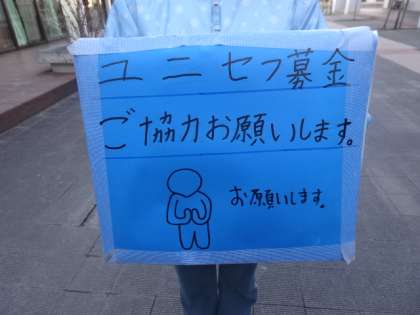 ユニセフ募金
ご協力お願いします。
お願いします。